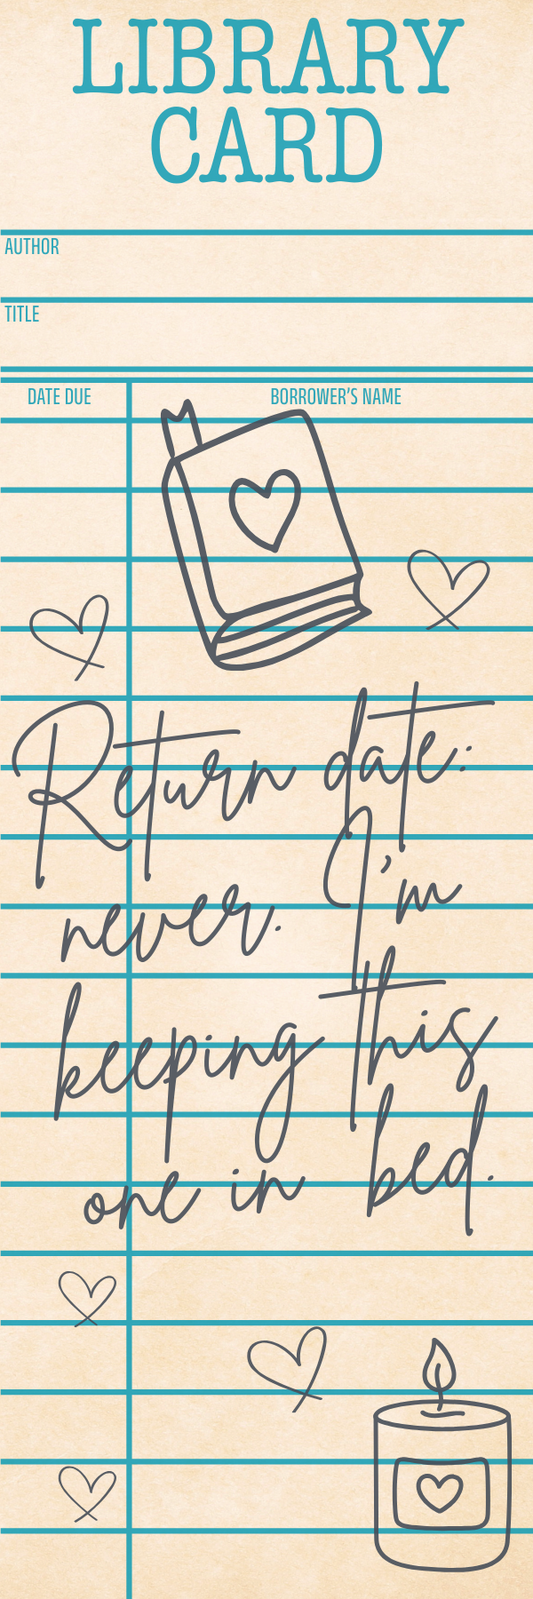 LIBRARY
CARD
AUTHOR
TITLE
DATE DUE BORROWER'S NAME
Return date:
never. I'm
keeping this
one in bed.